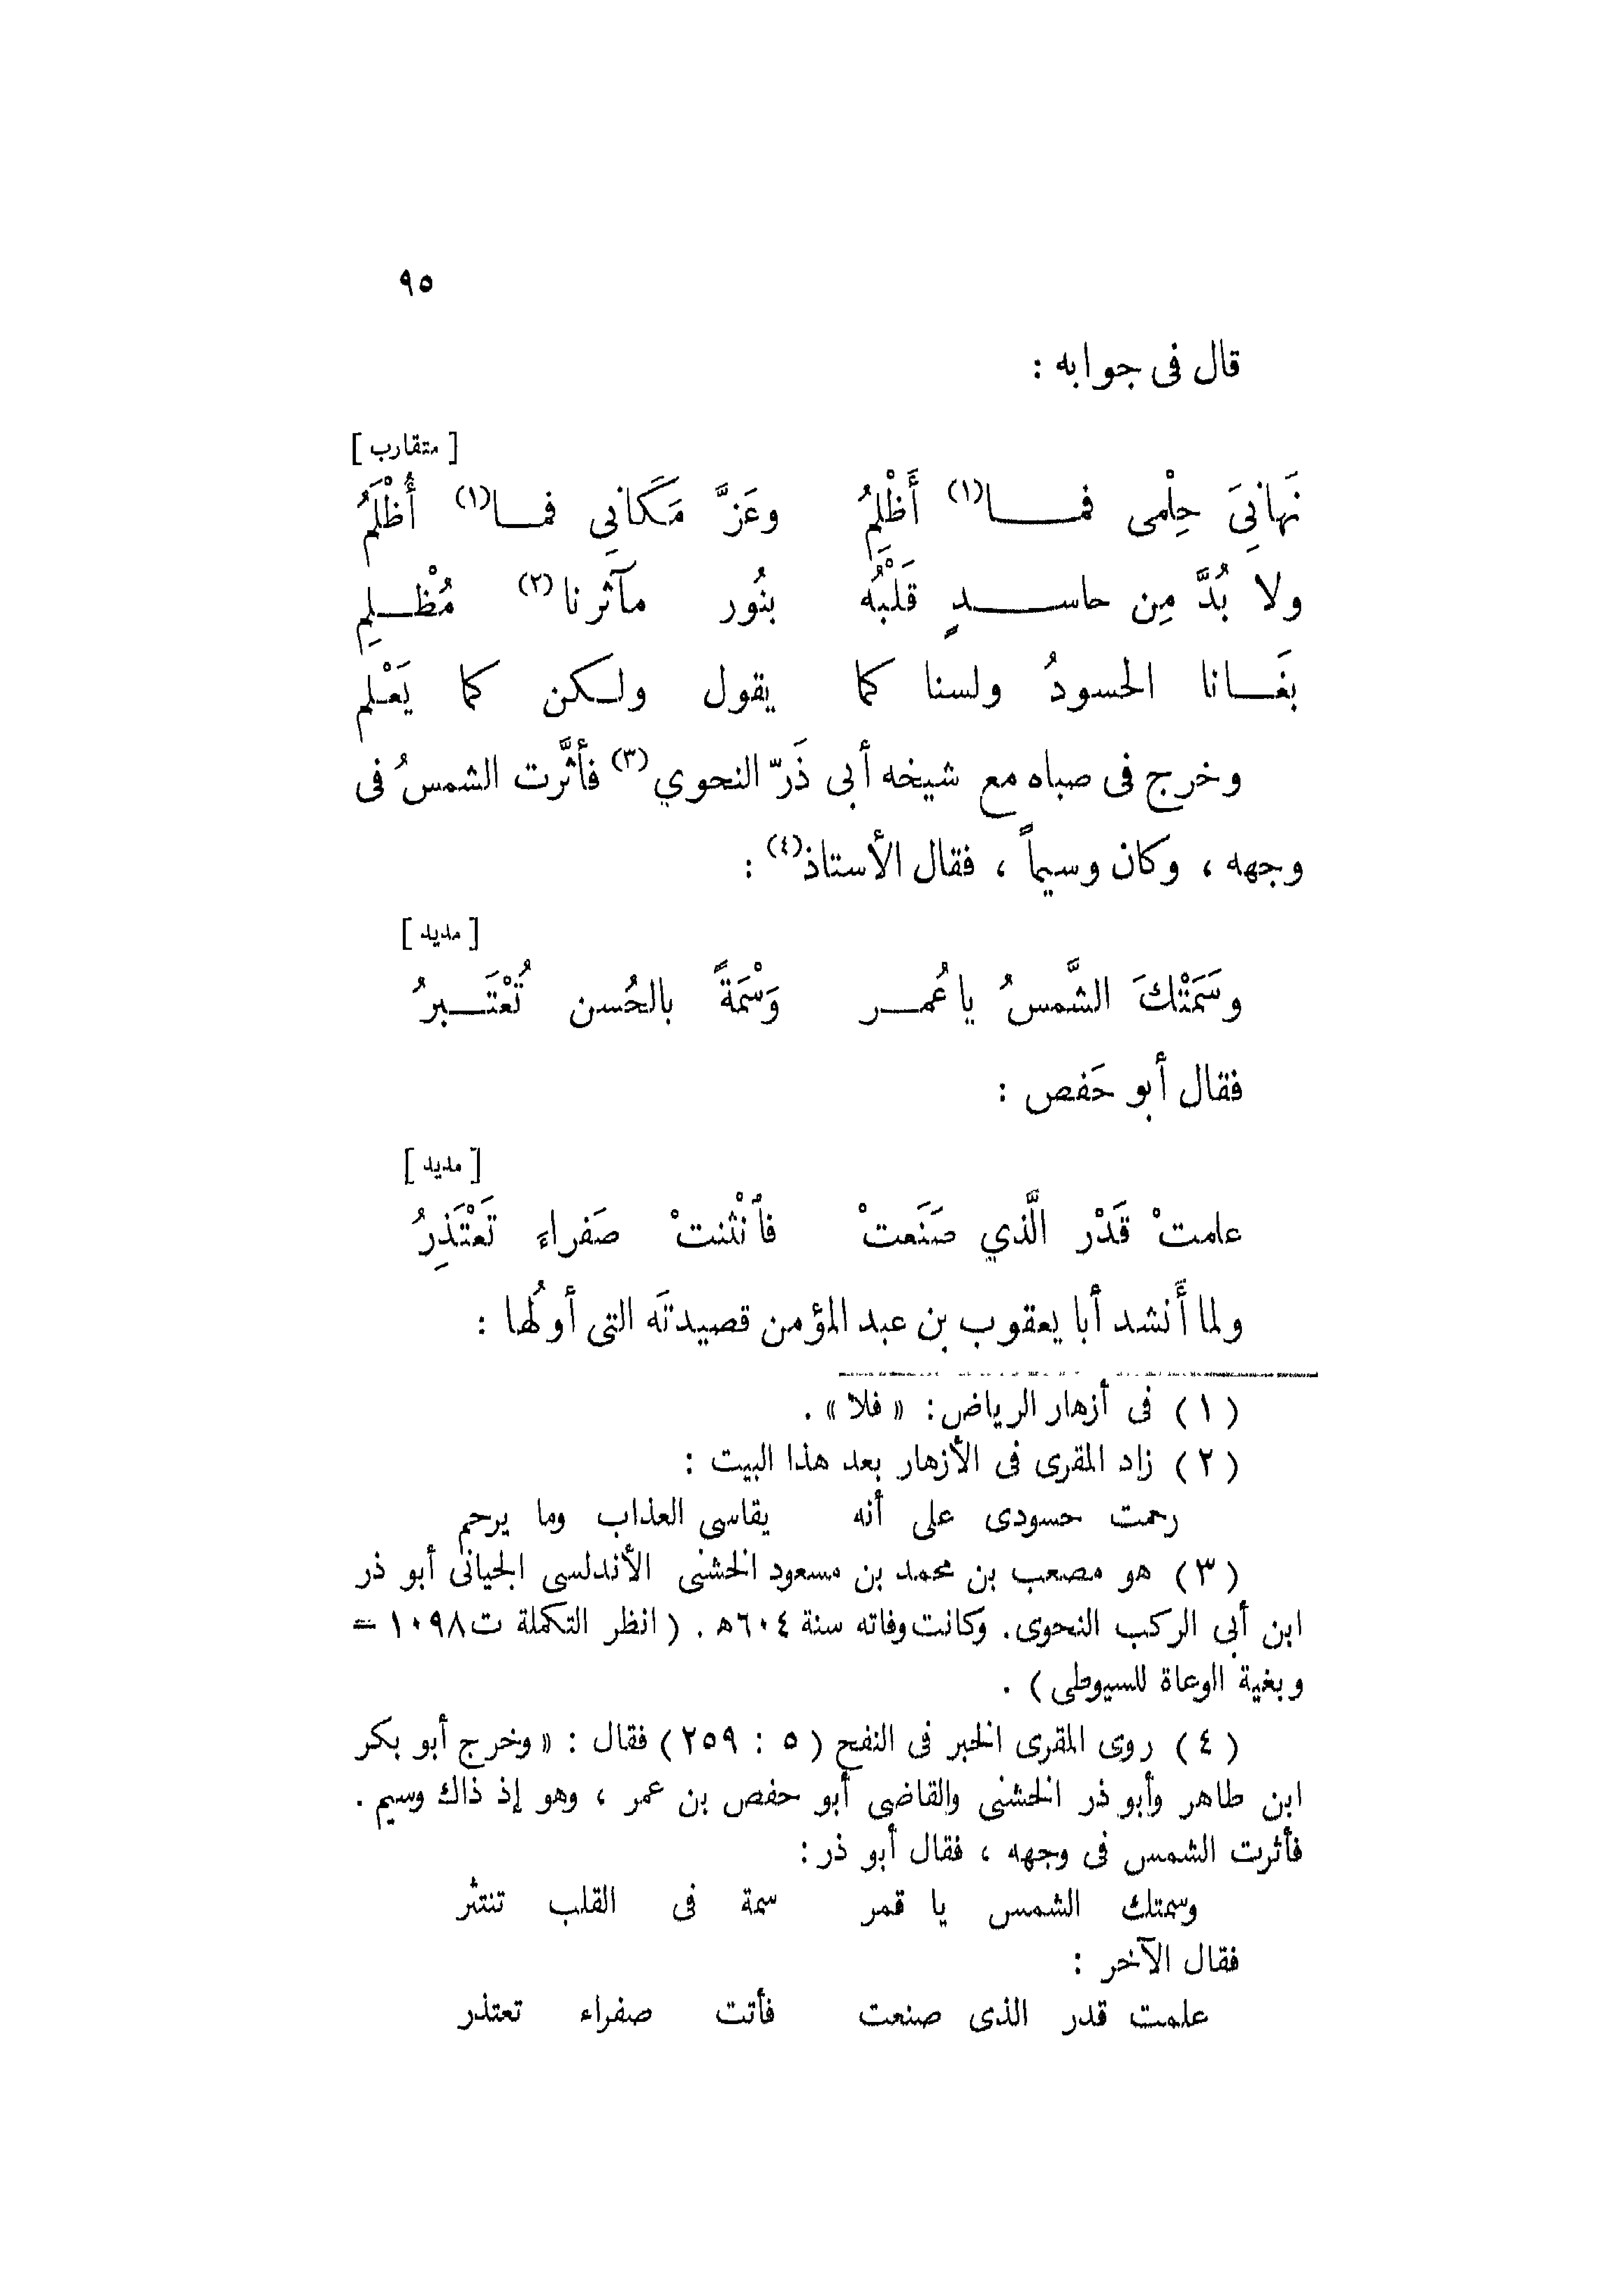 ٩٥
قال فى جوابه :
[ متقارب ]
نَهانِىَ حِلْمى فما(١) أَظْلِمُ وعَزَّ مَكَانِي فما(١) أُظْلَمُ
ولا بُدَّ مِن حاسدٍ قَلْبُه بنُور مآثرنا(٢) مُظْلِم
بغَانا الحسودُ ولسنا كما يقول ولكن كما يَعْلم
وخرج فى صباه مع شيخه أبى ذَرّ النحوي(٣) فأثَّرت الشمسُ فى
وجهه ، وكان وسيماً ، فقال الأستاذ(٤) :
[ مديد ]
وسَمَتْكَ الشَّمسُ يا عُمر وَسْمَةً بالحُسن تُعْتَبرُ
فقال أبو حَفص :
[ مديد ]
علمتْ قَدْر الَّذي صَنَعتْ فأنْثنتْ صَفراءَ تَعْتَذِرُ
ولما أَنشد أبا يعقوب بن عبد المؤمن قصيدتَه التى أولُها :
( ١ ) فى أزهار الرياض: « فلا » .
( ٢ ) زاد المقرى فى الأزهار بعد هذا البيت :
رحمت حسودى على أنه يقاسى العذاب وما يرحم
( ٣ ) هو مصعب بن محمد بن مسعود الخشنى الأندلسى الجيانى أبو ذر
ابن أبى الركب النحوى. وكانت وفاته سنة ٦٠٤ه . ( انظر التكملة ت١٠٩٨ =
وبغية الوعاة للسيوطى ) .
( ٤ ) روى المقرى الخبر فى النفح ( ٥ : ٢٥٩ ) فقال : « وخرج أبو بكر
ابن طاهر وأبو ذر الخشنى والقاضى أبو حفص بن عمر ، وهو إذ ذاك وسيم .
فأثرت الشمس فى وجهه ، فقال أبو ذر :
وسمتك الشمس يا قمر سمة فى القلب تنتثر
فقال الآخر :
علمت قدر الذى صنعت فأتت صفراء تعتذر